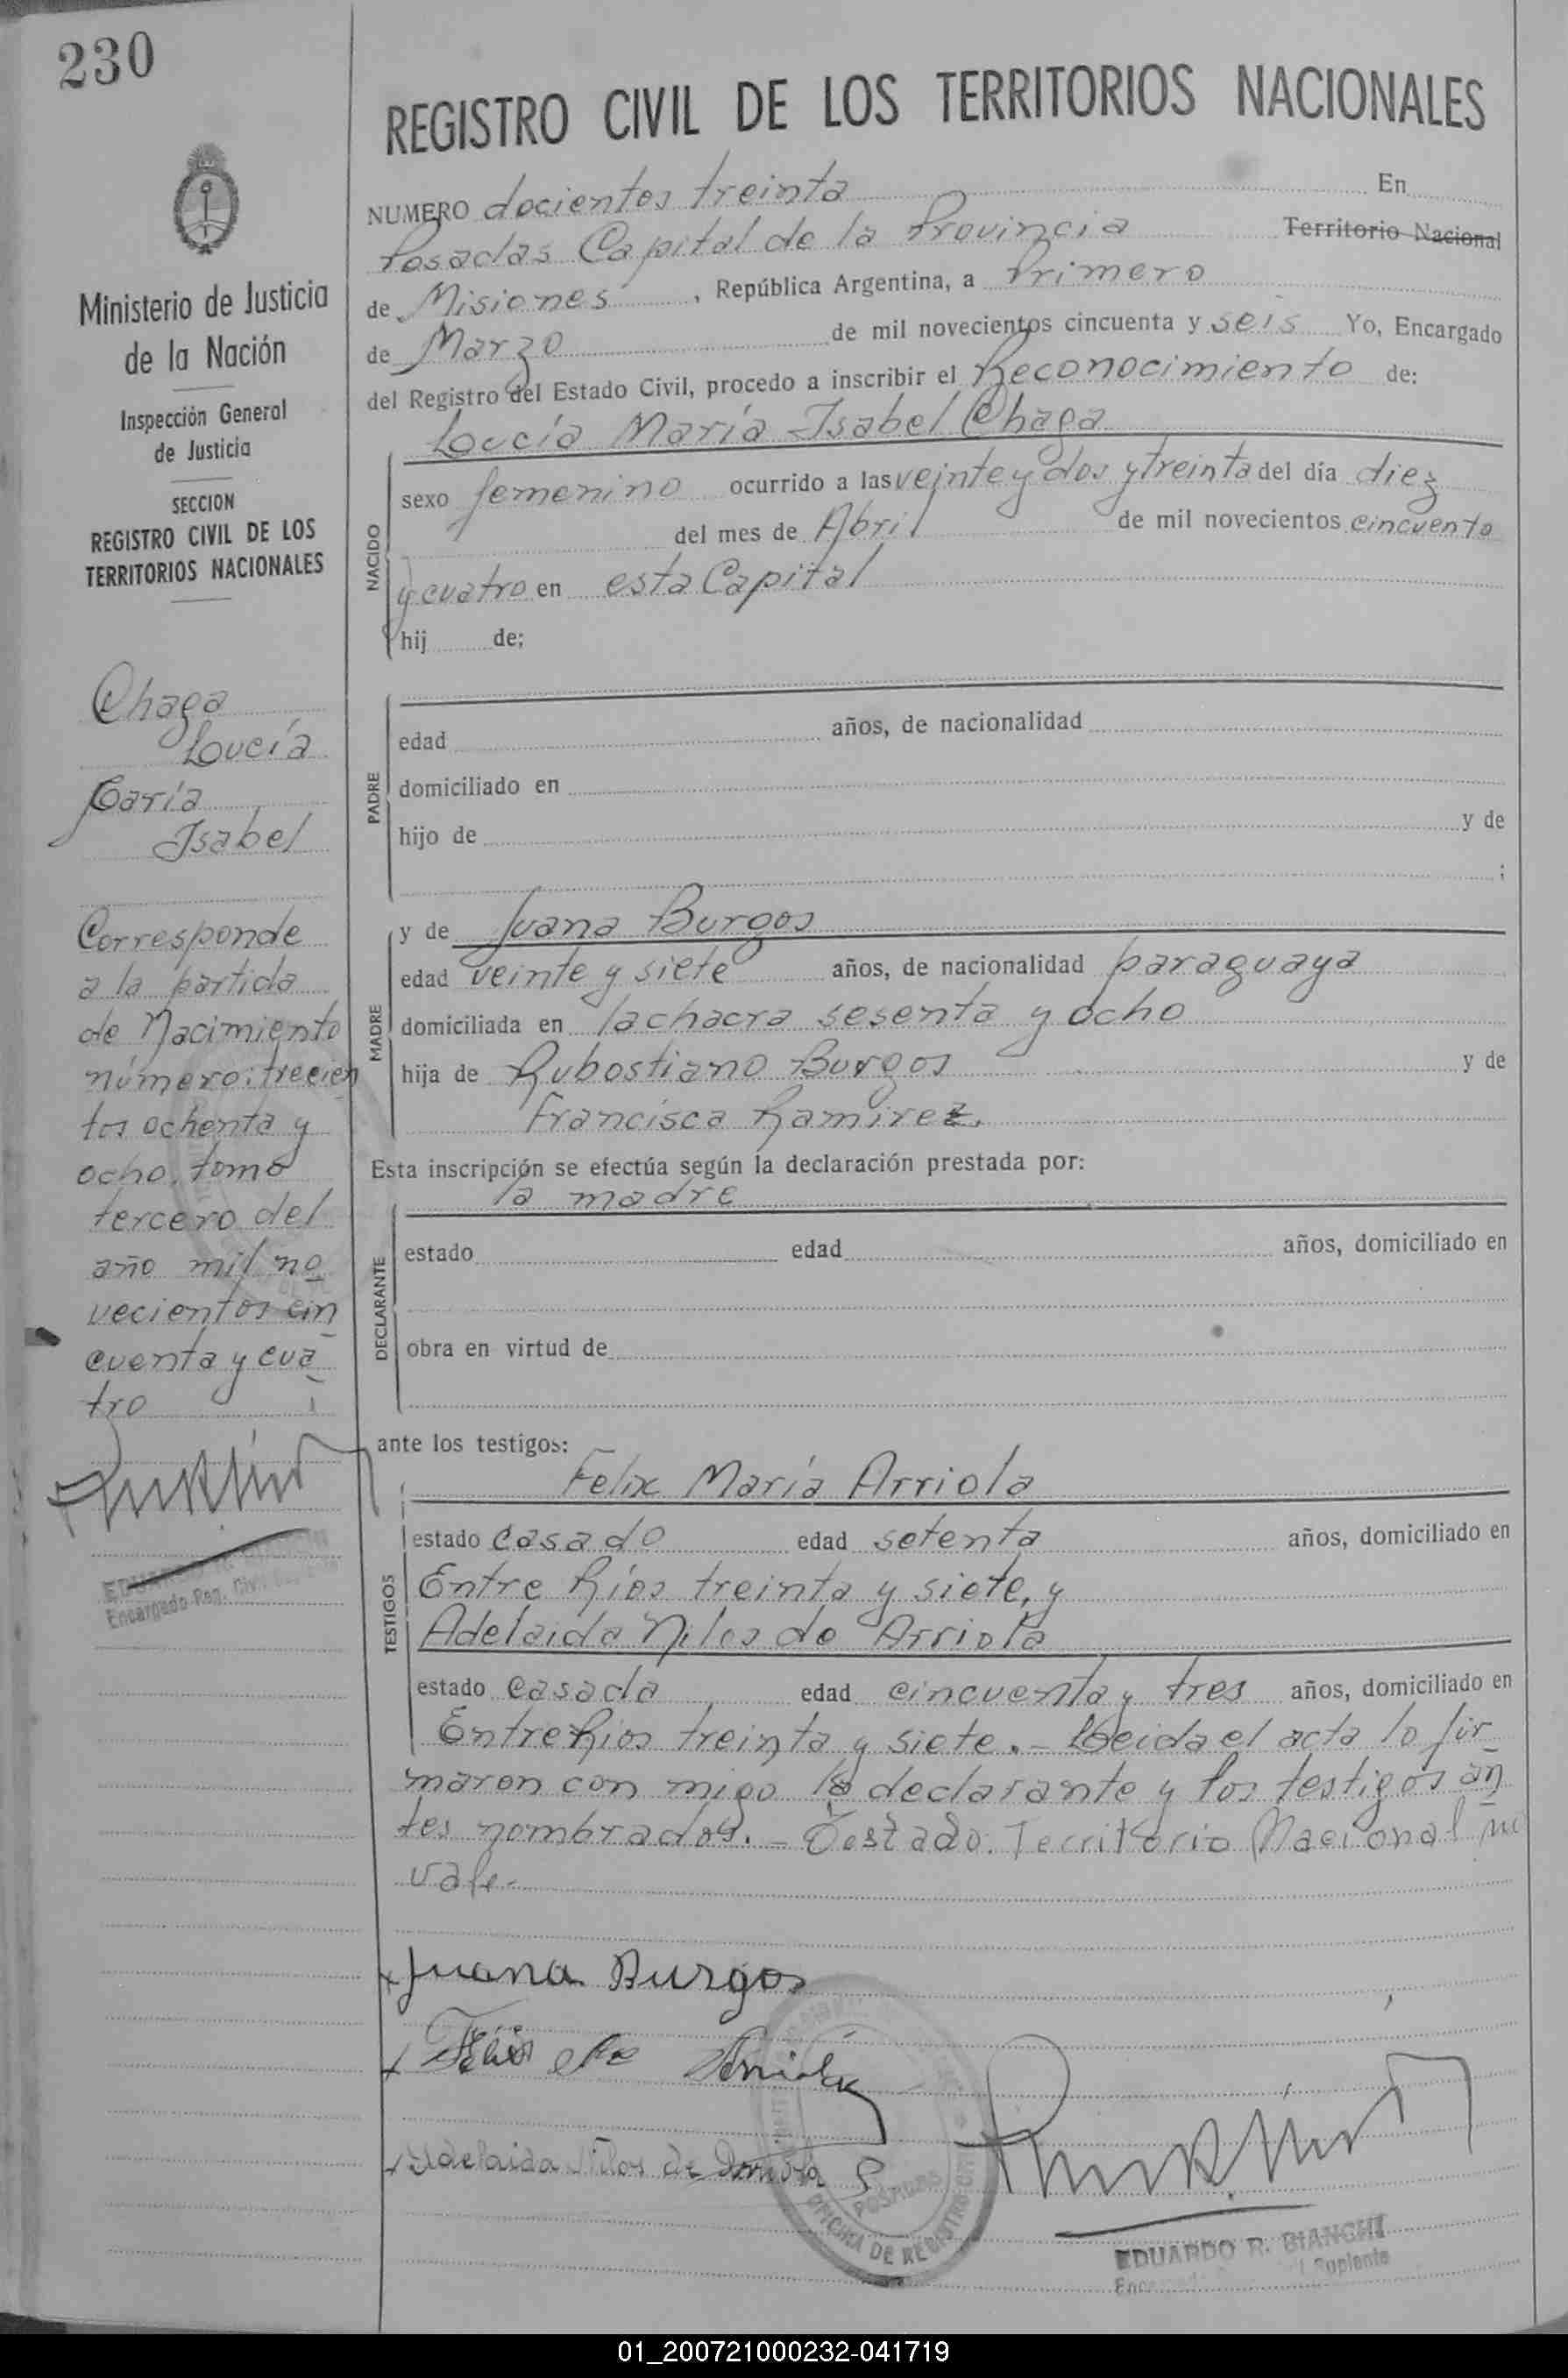 230
REGISTRO CIVIL DE LOS TERRITORIOS NACIONALES
NUMERO docientos treinta En
Posadas Capital de la Provincia Territorio Nacional
de Misiones, República Argentina, a Primero
de Marzo de mil novecientos cincuenta y seis Yo, Encargado
del Registro del Estado Civil, procedo a inscribir el Reconocimiento de:
Loucía María Isabel Chaga
NACIDO
sexo femenino ocurrido a las veinte y dos y treinta del día diez
del mes de Abril de mil novecientos cincuenta
y cuatro en esta Capital
hij de;
PADRE
edad años, de nacionalidad
domiciliado en
hijo de y de
;
MADRE
y de Juana Burgos
edad veinte y siete años, de nacionalidad paraguaya
domiciliada en la chacra sesenta y ocho
hija de Rubostiano Burgos y de
Francisca Ramirez.
Esta inscripción se efectúa según la declaración prestada por:
la madre
DECLARANTE
estado edad años, domiciliado en
obra en virtud de
ante los testigos:
Felix María Arriola
TESTIGOS
estado casado edad setenta años, domiciliado en
Entre Ríos treinta y siete, y
Adelaida Niles de Arriola
estado casada edad cincuenta y tres años, domiciliado en
Entre Rios treinta y siete.- Leida el acta lo fir
maron con migo la declarante y los testigos an
tes nombrados.- Testado: Territorio Nacional no
vale.-
Juana Burgos
Felix Arriola
Adelaida Niles de Arriola
OFICINA DE REGISTRO
POSADAS
EDUARDO R. BIANCHI
Suplente
Ministerio de Justicia
de la Nación
Inspección General
de Justicia
SECCION
REGISTRO CIVIL DE LOS
TERRITORIOS NACIONALES
Chaga
Loucía
María
Isabel
Corresponde
a la partida
de Nacimiento
número: trecien
tos ochenta y
ocho, tomo
tercero del
año mil no
vecientos cin
cuenta y cua
tro
Encargado Reg. Civil
01_200721000232-041719